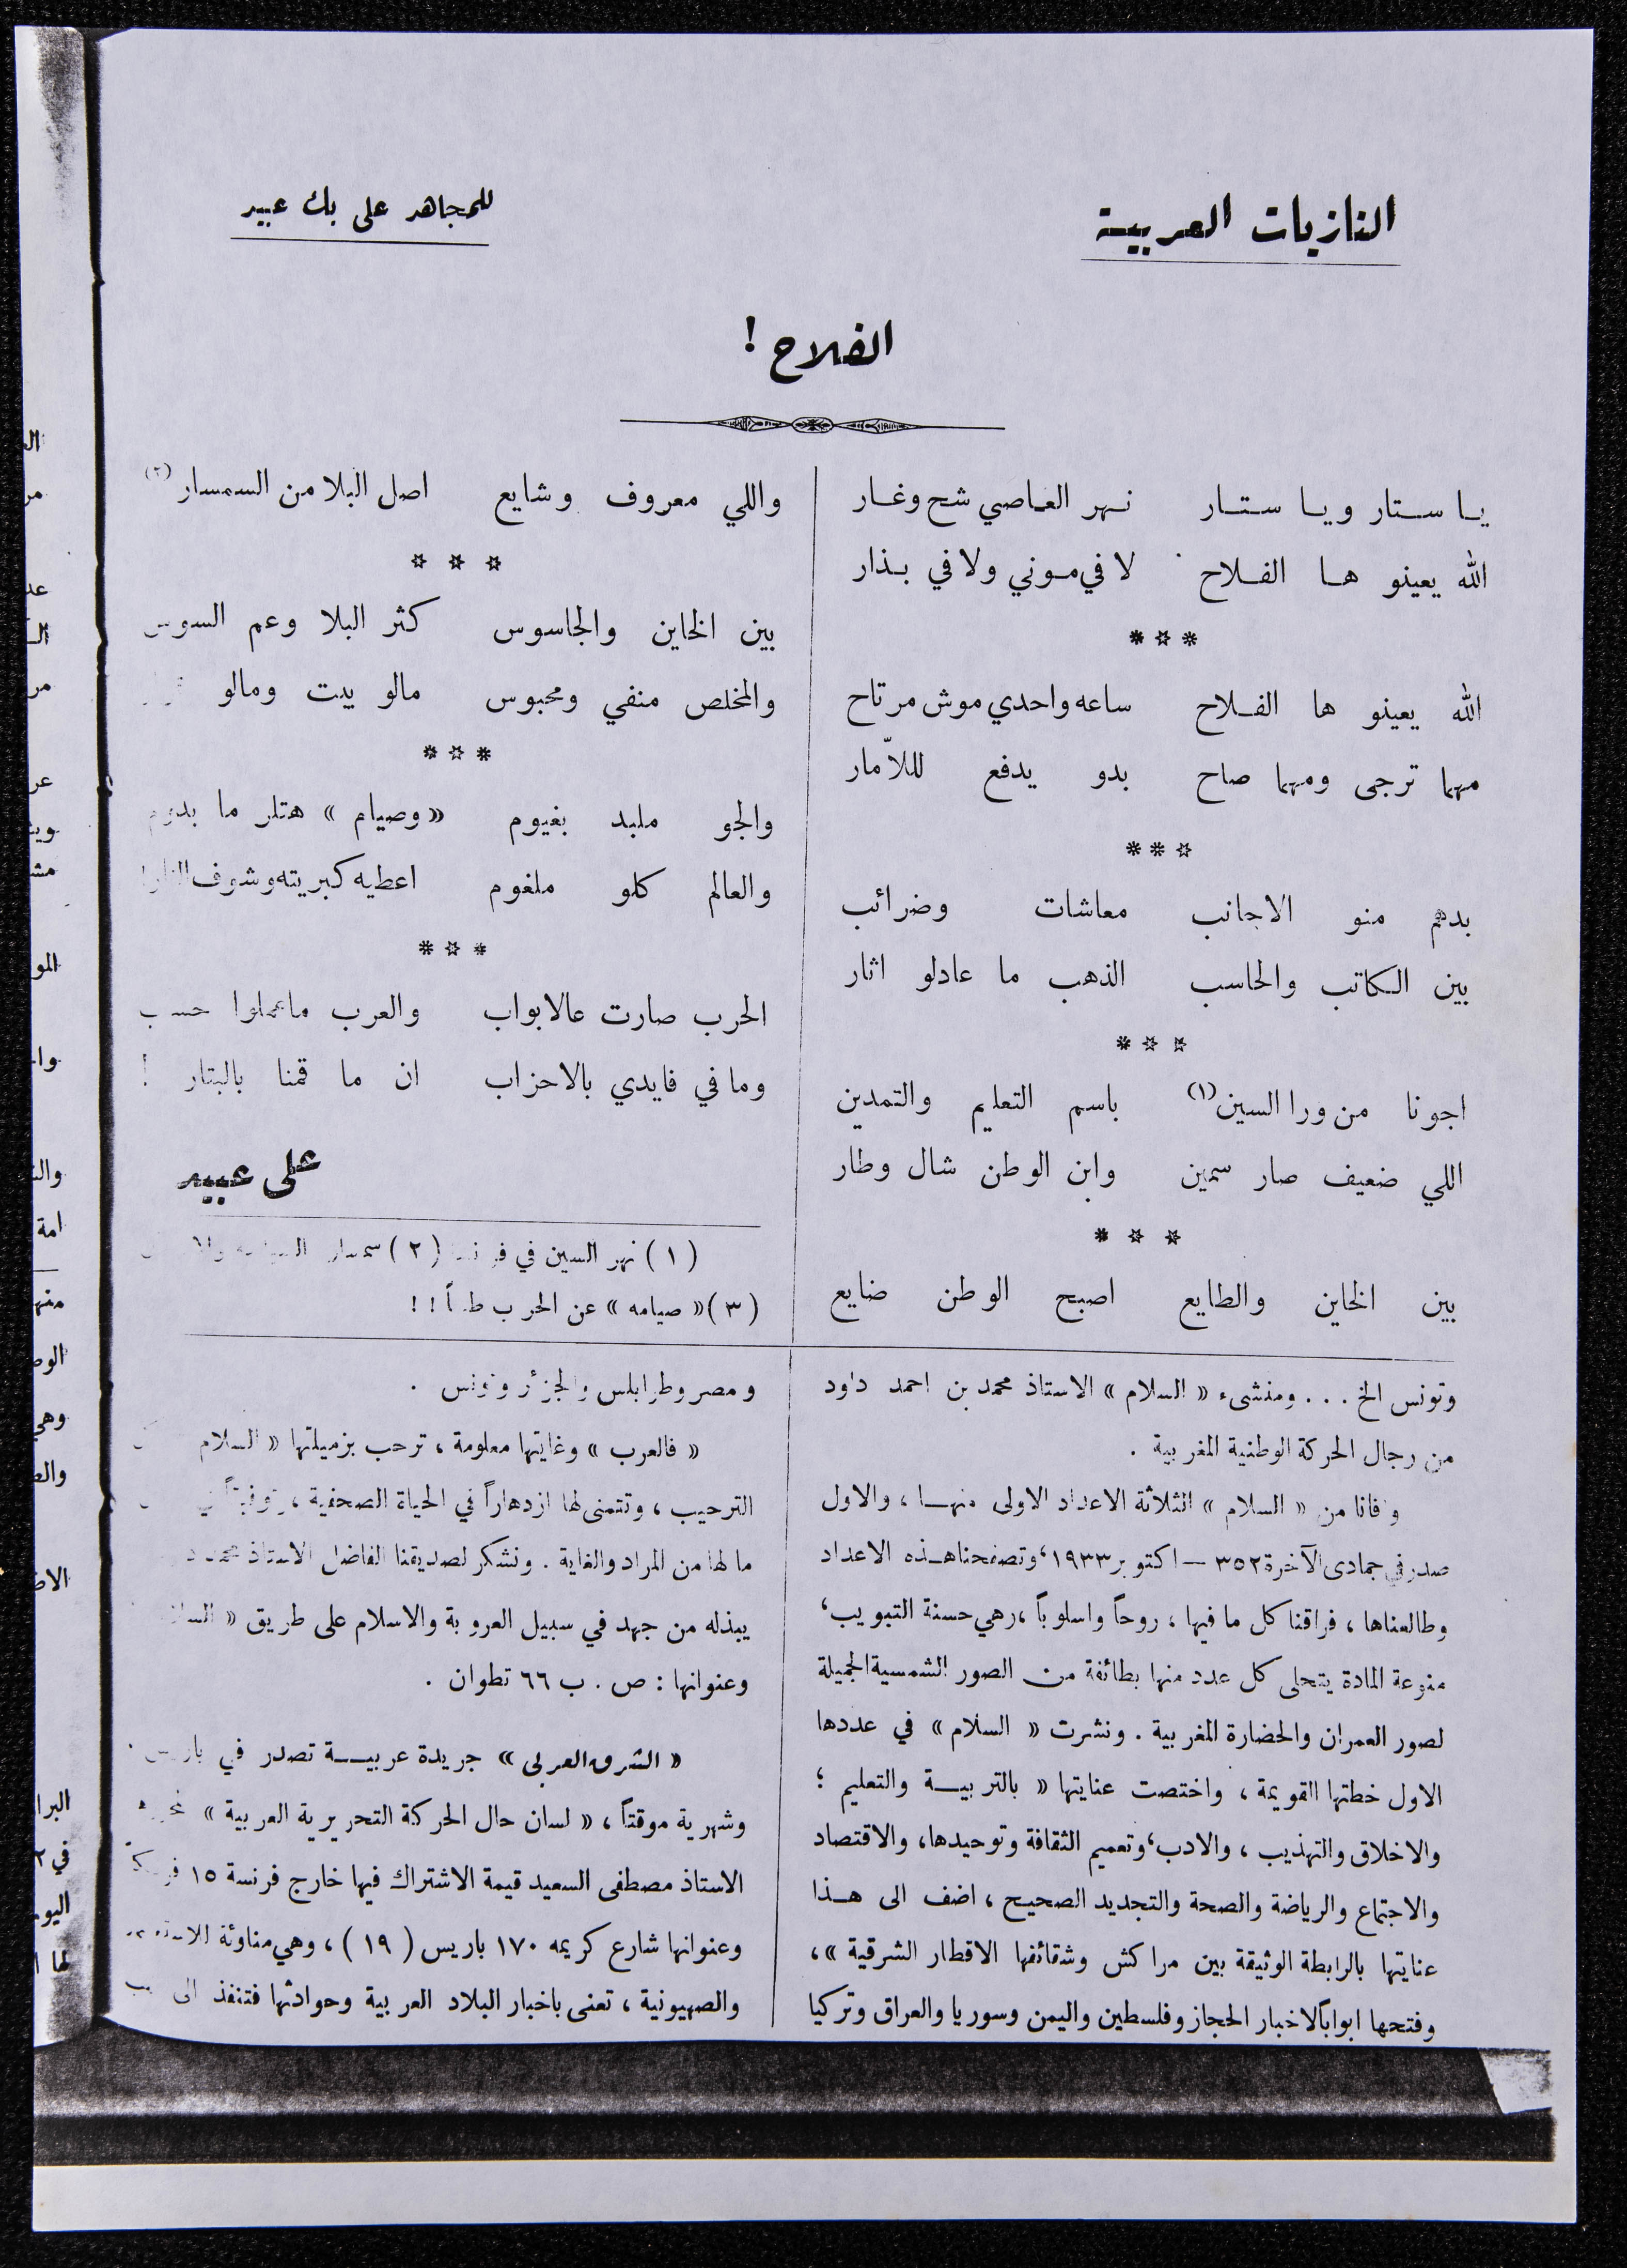 النازيات العربية
للمجاهد على بك عبيد
الفلاح !
يا ستار ويا ستار نهر العاصي شح وغار
الله يعينو ها الفلاح لا في موني ولا في بذار
الله يعينو ها الفلاح ساعه واحدي موش مرتاح
مهما ترجى ومهما صاح بدو يدفع للآمار
بدهم منو الاجانب معاشات وضرائب
بين الكاتب والحاسب الذهب ما عادلو اثار
اجونا من ورا السين (١) باسم التعليم والتمدين
اللي ضعيف صار سمين وابن الوطن شال وطار
بين الخاين والطايع اصبح الوطن ضايع
واللي معروف وشايع اصل البلا من السمسار (٢)
بين الخاين والجاسوس كثر البلا وعم السوس
والمخلص منفي ومحبوس مالو بيت ومالو
والجو ملبد بغيوم « وصيام » هتلر ما بدوم
والعالم كلو ملغوم اعطيه كبريته وشوف النار
الحرب صارت عالابواب والعرب ماعملوا حساب
وما في فايدي بالاحزاب ان ما قمنا بالبتار !
على عبيد
(١) نهر السين في فرنسا (٢) سمسار
(٣) « صيامه » عن الحرب طبعاً ! !
وتونس الخ . . . ومنشىء « السلام » الاستاذ محمد بن احمد داود
من رجال الحركة الوطنية المغربية .
وافانا من « السلام » الثلاثة الاعداد الاولى منها ، والاول
صدر في جمادى الآخرة ٣٥٢ — اكتوبر ١٩٣٣، وتصفحنا هذه الاعداد
وطالعناها ، فراقنا كل ما فيها ، روحاً واسلوباً ، وهي حسنة التبويب،
منوعة المادة يتحلى كل عدد منها بطائفة من الصور الشمسية الجميلة
لصور العمران والحضارة المغربية . ونشرت « السلام » في عددها
الاول خطتها القويمة ، واختصت عنايتها « بالتربية والتعليم ؛
والاخلاق والتهذيب ، والادب، وتعميم الثقافة وتوحيدها، والاقتصاد
والاجتماع والرياضة والصحة والتجديد الصحيح ، اضف الى هذا
عنايتها بالرابطة الوثيقة بين مراكش وشقائفها الاقطار الشرقية » ،
وفتحها ابواباً لاخبار الحجاز وفلسطين واليمن وسوريا والعراق وتركيا
ومصر وطرابلس والجزائر وتونس .
« فالعرب » وغايتها معلومة ، ترحب بزميلتها « السلام
الترحيب ، وتتمنى لها ازدهاراً في الحياة الصحفية ، وتوفيقاً
ما لها من المراد والغاية . ونشكر لصديقنا الفاضل الاستاذ محمد
يبذله من جهد في سبيل العروبة والاسلام على طريق « السلام
وعنوانها : ص . ب ٦٦ تطوان .
« الشرق العربي » جريدة عربية تصدر في باريس .
وشهرية موقتاً ، « لسان حال الحركة التحريرية العربية »
الاستاذ مصطفى السعيد قيمة الاشتراك فيها خارج فرنسة ١٥
وعنوانها شارع كريمه ١٧٠ باريس ( ١٩ ) ، وهي مناوئة
والصهيونية ، تعنى باخبار البلاد العربية وحوادثها فتنفذ الى